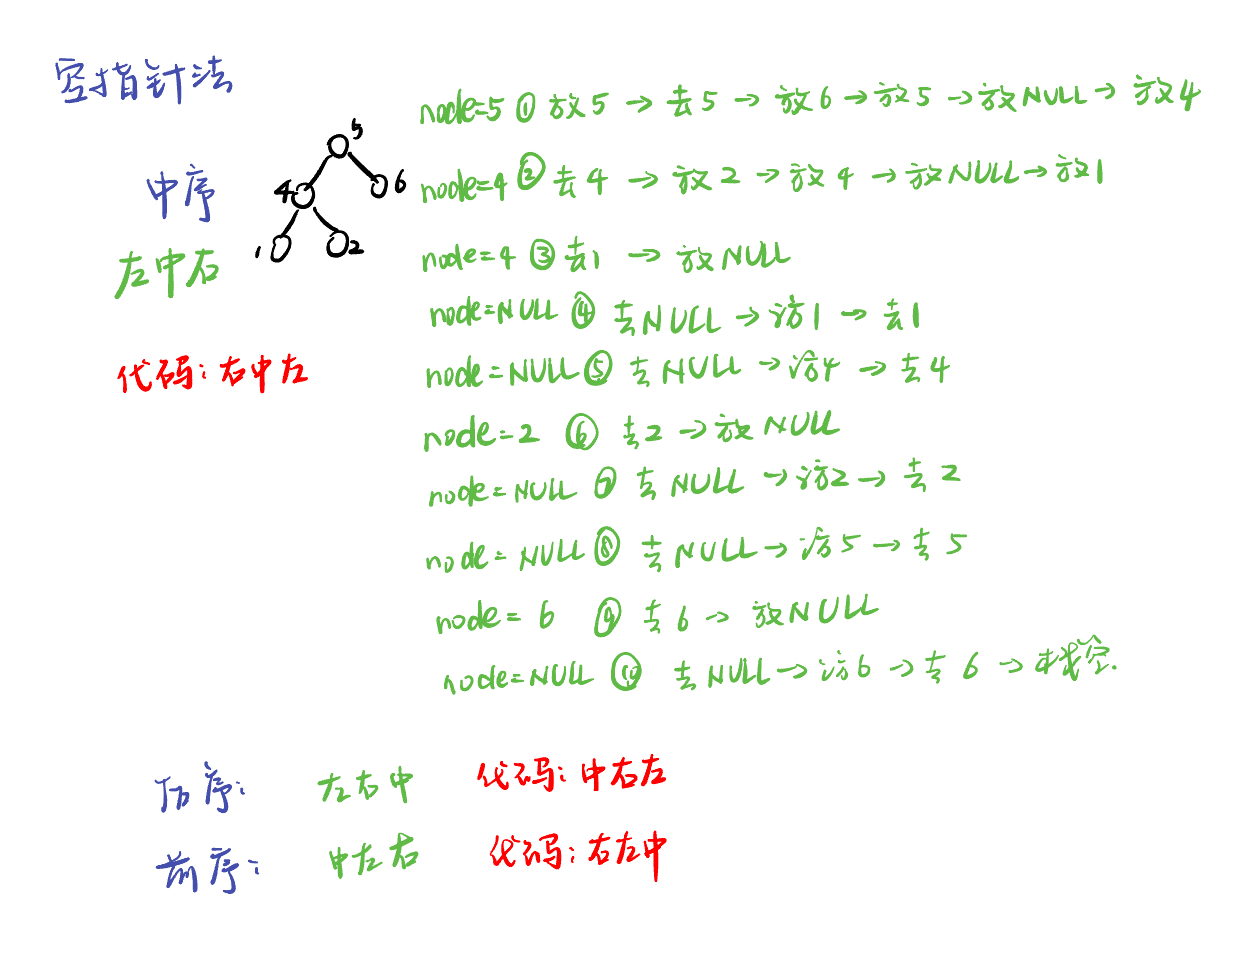 空指针法
node=5 ① 放5 → 去5 → 放6 → 放5 → 放NULL → 放4
中序
5
4
6
1
2
node=4 ② 去4 → 放2 → 放4 → 放NULL → 放1
左中右
node=4 ③ 去1 → 放NULL
node=NULL ④ 去NULL → 访1 → 去1
代码:右中左
node=NULL ⑤ 去NULL → 访4 → 去4
node=2 ⑥ 去2 → 放NULL
node=NULL ⑦ 去NULL → 访2 → 去2
node=NULL ⑧ 去NULL → 访5 → 去5
node=6 ⑨ 去6 → 放NULL
node=NULL ⑩ 去NULL → 访6 → 去6 → 栈空.
后序: 左右中 代码:中右左
前序: 中左右 代码:右左中